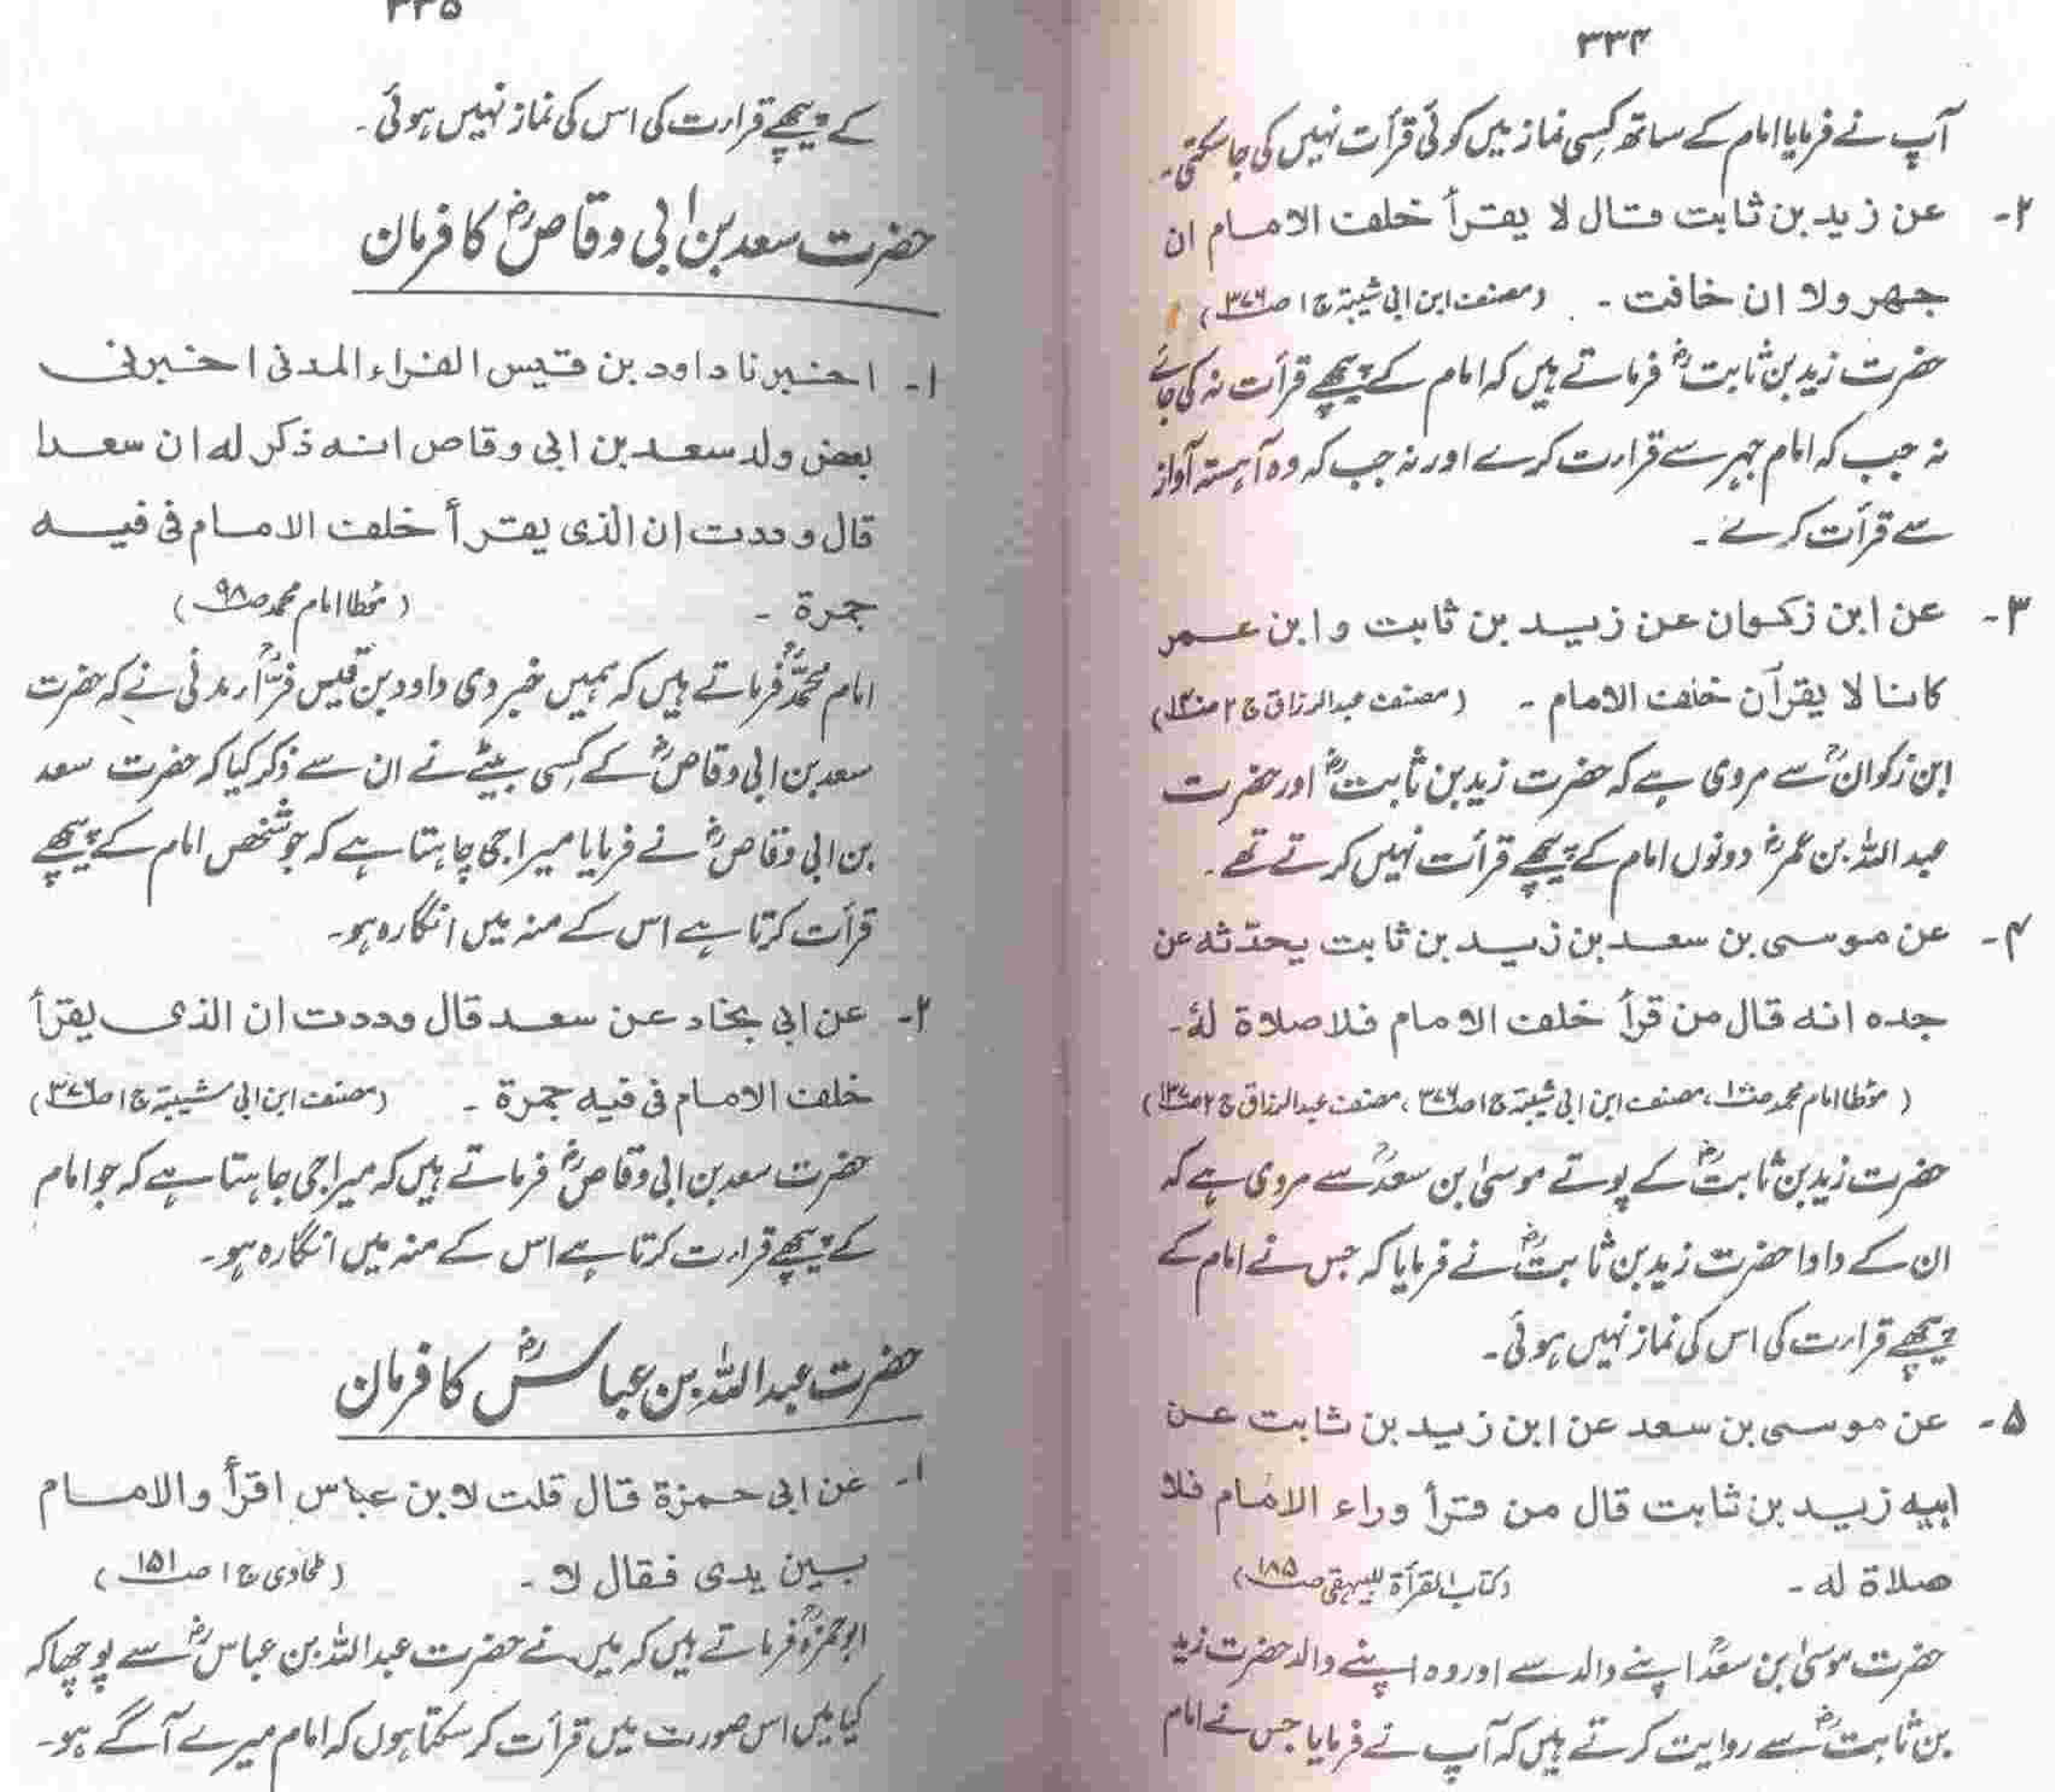 ۳۳۴
آپ نے فرمایا امام کے ساتھ کسی نماز میں کوئی قرأت نہیں کی جا سکتی۔
۲- عن زید بن ثابت قال لا یقرأ خلف الامام ان
جھر ولا ان خافت ۔ (مصنف ابن ابی شیبۃ ج ۱ ص۳۷۶)
حضرت زید بن ثابتؓ فرماتے ہیں کہ امام کے پیچھے قرأت نہ کی جائے
نہ جب کہ امام جہر سے قرارت کرے اور نہ جب کہ وہ آہستہ آواز
سے قرأت کرے ۔
۳- عن ابن زکوان عن زید بن ثابت وابن عمر
کانا لا یقرآن خلف الامام ۔ (مصنف عبدالرزاق ج ۲ ص۱۴۰)
ابن زکوانؒ سے مروی ہے کہ حضرت زید بن ثابتؓ اور حضرت
عبداللہ بن عمرؓ دونوں امام کے پیچھے قرأت نہیں کرتے تھے ۔
۴- عن موسی بن سعد بن زید بن ثابت یحدّثه عن
جدہ انه قال من قرأ خلف الامام فلا صلاة لهٗ ۔
(مؤطا امام محمد ص۱۰۰، مصنف ابن ابی شیبۃ ج ۱ ص۳۷۶، مصنف عبدالرزاق ج ۲ ص۱۳۷)
حضرت زید بن ثابتؓ کے پوتے موسیٰ بن سعدؒ سے مروی ہے کہ
ان کے دادا حضرت زید بن ثابتؓ نے فرمایا کہ جس نے امام کے
پیچھے قرارت کی اس کی نماز نہیں ہوئی۔
۵- عن موسی بن سعد عن ابن زید بن ثابت عن
ابیه زید بن ثابت قال من قرأ وراء الامام فلا
صلاة له ۔ (کتاب القرأة للبیہقی ص۱۸۵)
حضرت موسیٰ بن سعدؒ اپنے والد سے اور وہ اپنے والد حضرت زید
بن ثابتؓ سے روایت کرتے ہیں کہ آپ نے فرمایا جس نے امام
۳۳۵
کے پیچھے قرارت کی اس کی نماز نہیں ہوئی ۔
حضرت سعد بن ابی وقاصؓ کا فرمان
۱- اخبرنا داود بن قیس الفراء المدنی اخبرنی
بعض ولد سعد بن ابی وقاص انه ذکر له ان سعدا
قال وددت ان الذی یقرأ خلف الامام فی فیه
جمرة ۔ (مؤطا امام محمد ص۹۸)
امام محمدؒ فرماتے ہیں کہ ہمیں خبر دی داود بن قیس فرّاءؒ مدنی نے کہ حضرت
سعد بن ابی وقاصؓ کے کسی بیٹے نے ان سے ذکر کیا کہ حضرت سعد
بن ابی وقاصؓ نے فرمایا میرا جی چاہتا ہے کہ جو شخص امام کے پیچھے
قرأت کرتا ہے اس کے منہ میں انگارہ ہو۔
۲- عن ابی بخاد عن سعد قال وددت ان الذی یقرأ
خلف الامام فی فیه جمرة ۔ (مصنف ابن ابی شیبۃ ج ۱ ص۳۷۶)
حضرت سعد بن ابی وقاصؓ فرماتے ہیں کہ میرا جی چاہتا ہے کہ جو امام
کے پیچھے قرارت کرتا ہے اس کے منہ میں انگارہ ہو۔
حضرت عبداللہ بن عباسؓ کا فرمان
۱- عن ابی حمزة قال قلت لابن عباس اقرأ والامام
بین یدی فقال لا ۔ (طحاوی ج ۱ ص۱۵۱)
ابو حمزہؒ فرماتے ہیں کہ میں نے حضرت عبداللہ بن عباسؓ سے پوچھا کہ
کیا میں اس صورت میں قرأت کر سکتا ہوں کہ امام میرے آگے ہو۔